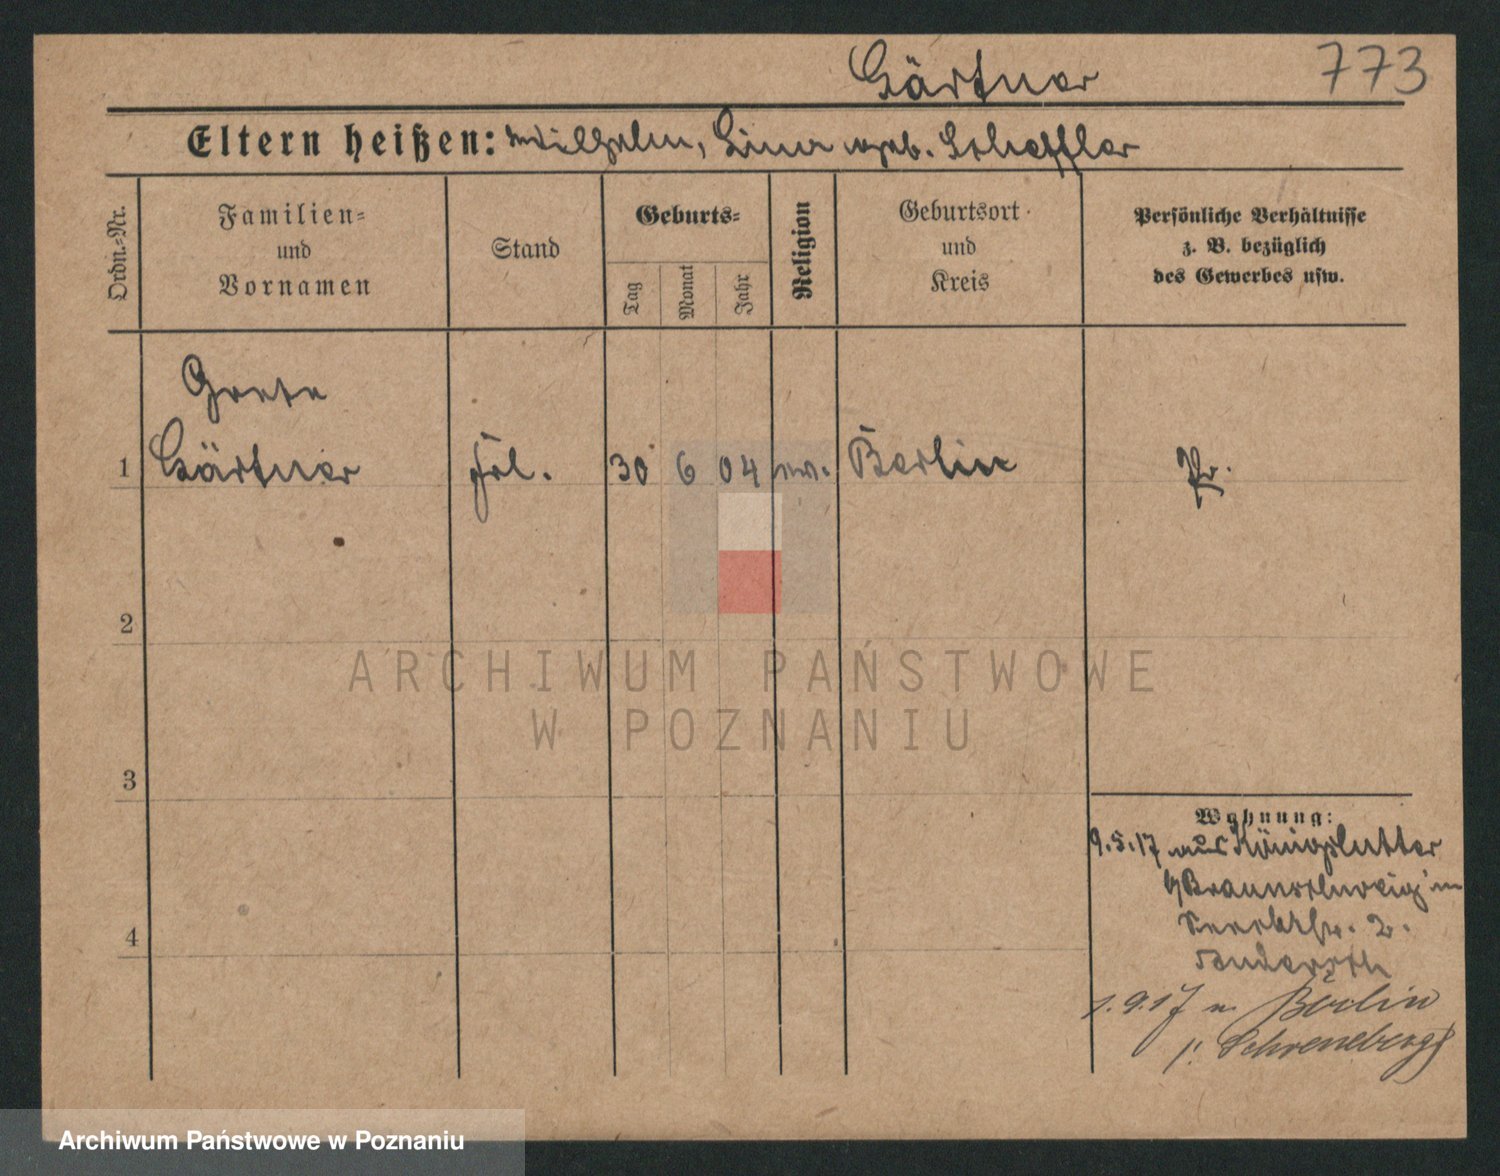 Gärtner 773
Eltern heißen: Wilhelm, Lina geb. Scheffler
Ordn.-Nr.
Familien-
und
Vornamen
Stand
Geburts-
Tag
Monat
Jahr
Religion
Geburtsort
und
Kreis
Persönliche Verhältnisse
z. B. bezüglich
des Gewerbes usw.
Grete
1 Gärtner Frl. 30 6 04 ev. Berlin Pr.
2
3
4
Wohnung:
9.5.17 aus Königslutter
Braunschweig in
2.
1.9.17 n. Berlin
Schöneberg
ARCHIWUM PAŃSTWOWE
W POZNANIU
Archiwum Państwowe w Poznaniu